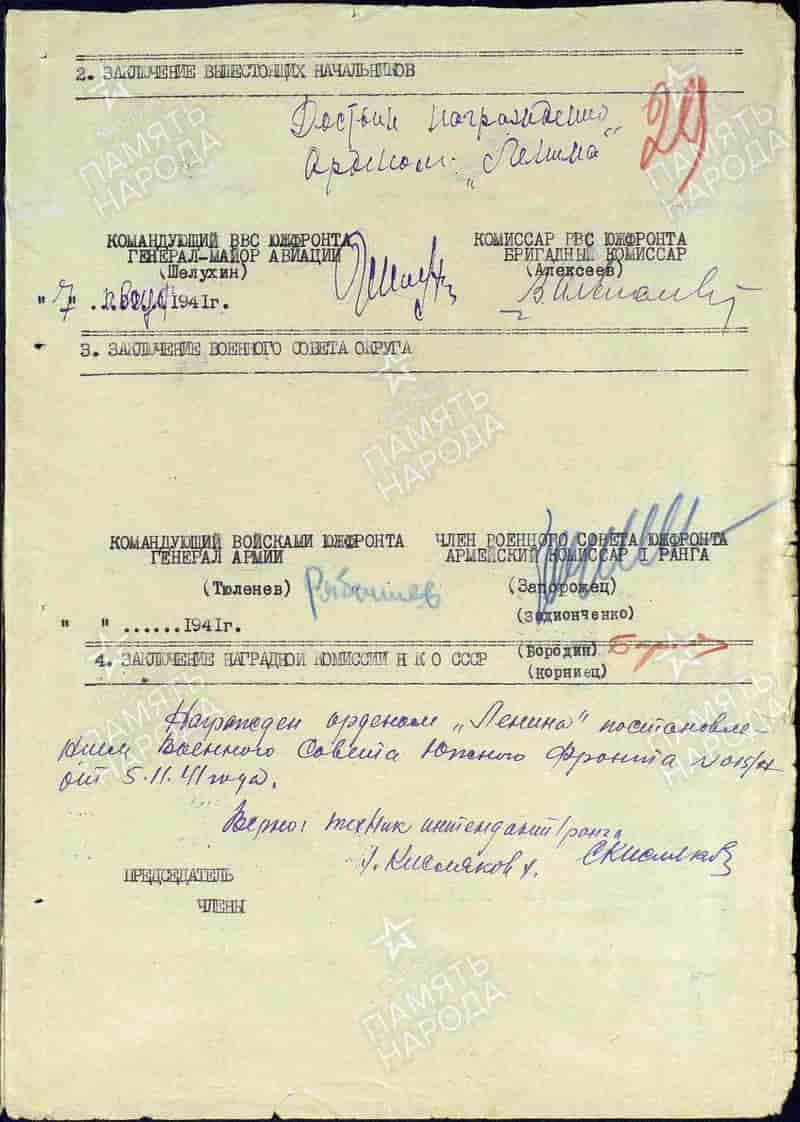 2. ЗАКЛЮЧЕНИЕ ВЫШЕСТОЯЩИХ НАЧАЛЬНИКОВ
29
Достоин награждения
орденом „Ленина"
КОМАНДУЮЩИЙ ВВС ЮЖФРОНТА
ГЕНЕРАЛ-МАЙОР АВИАЦИИ
(Шелухин)
КОМИССАР ВВС ЮЖФРОНТА
БРИГАДНЫЙ КОМИССАР
(Алексеев)
"7" 1941г.
3. ЗАКЛЮЧЕНИЕ ВОЕННОГО СОВЕТА ОКРУГА
КОМАНДУЮЩИЙ ВОЙСКАМИ ЮЖФРОНТА
ГЕНЕРАЛ АРМИИ
(Тюленев)
ЧЛЕН ВОЕННОГО СОВЕТА ЮЖФРОНТА
АРМЕЙСКИЙ КОМИССАР I РАНГА
(Запорожец)
(Задионченко)
(Бородин)
(корниец)
" " ......1941г.
4. ЗАКЛЮЧЕНИЕ НАГРАДНОЙ КОМИССИИ Н К О СССР
Награжден орденом „Ленина" постановле-
нием Военного Совета Южного Фронта
от 5.11.41 года.
Верно: техник интендант I ранга
Кисляков
ПРЕДСЕДАТЕЛЬ
ЧЛЕНЫ
ПАМЯТЬ
НАРОДА
ПАМЯТЬ
НАРОДА
ПАМЯТЬ
НАРОДА
ПАМЯТЬ
НАРОДА
ПАМЯТЬ
НАРОДА
ПАМЯТЬ
НАРОДА